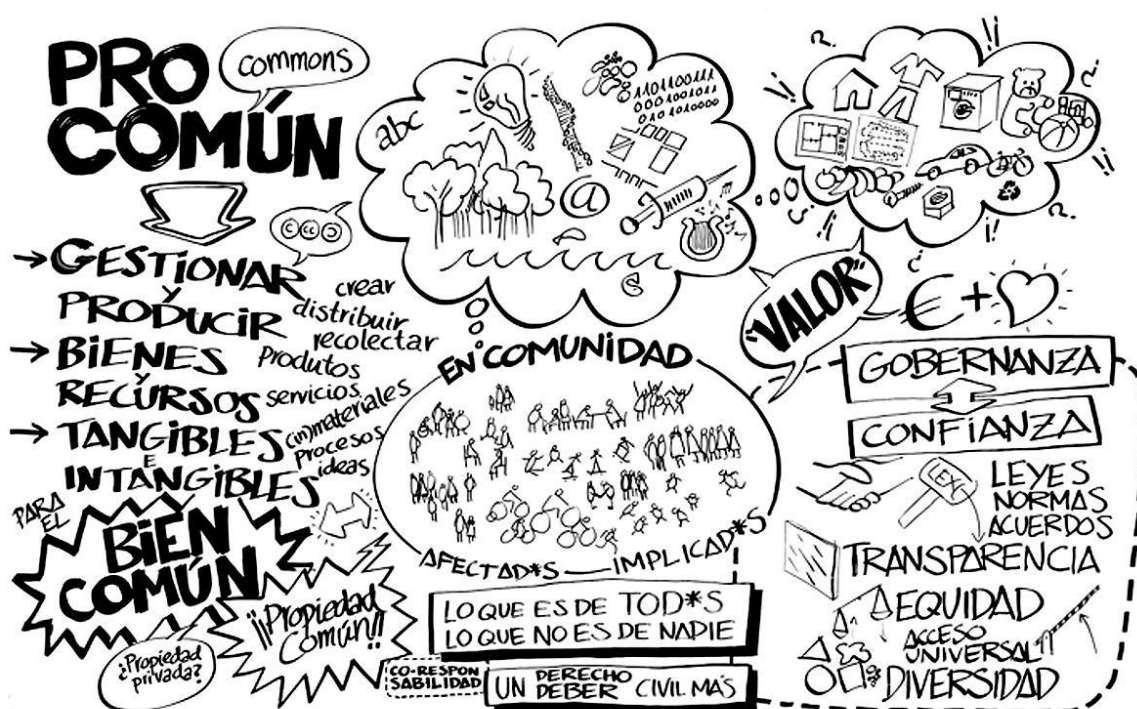 PRO
COMÚN
commons
GESTIONAR
Y
PRODUCIR
crear
distribuir
recolectar
BIENES
Y
RECURSOS
Produtos
servicios
TANGIBLES
E
INTANGIBLES
(in)materiales
procesos
ideas
PARA
EL
BIEN
COMÚN
¡¡Propiedad
Común!!
¿Propiedad
privada?
abc
11011001111
0001001011
0101010000
@
EN COMUNIDAD
AFECTAD*S — IMPLICAD*S
LO QUE ES DE TOD*S
LO QUE NO ES DE NADIE
CO-RESPON
SABILIDAD
UN DERECHO
DEBER CIVIL MÁS
"VALOR"
€ +
GOBERNANZA
CONFIANZA
LEX
LEYES
NORMAS
ACUERDOS
TRANSPARENCIA
EQUIDAD
ACCESO
UNIVERSAL
DIVERSIDAD